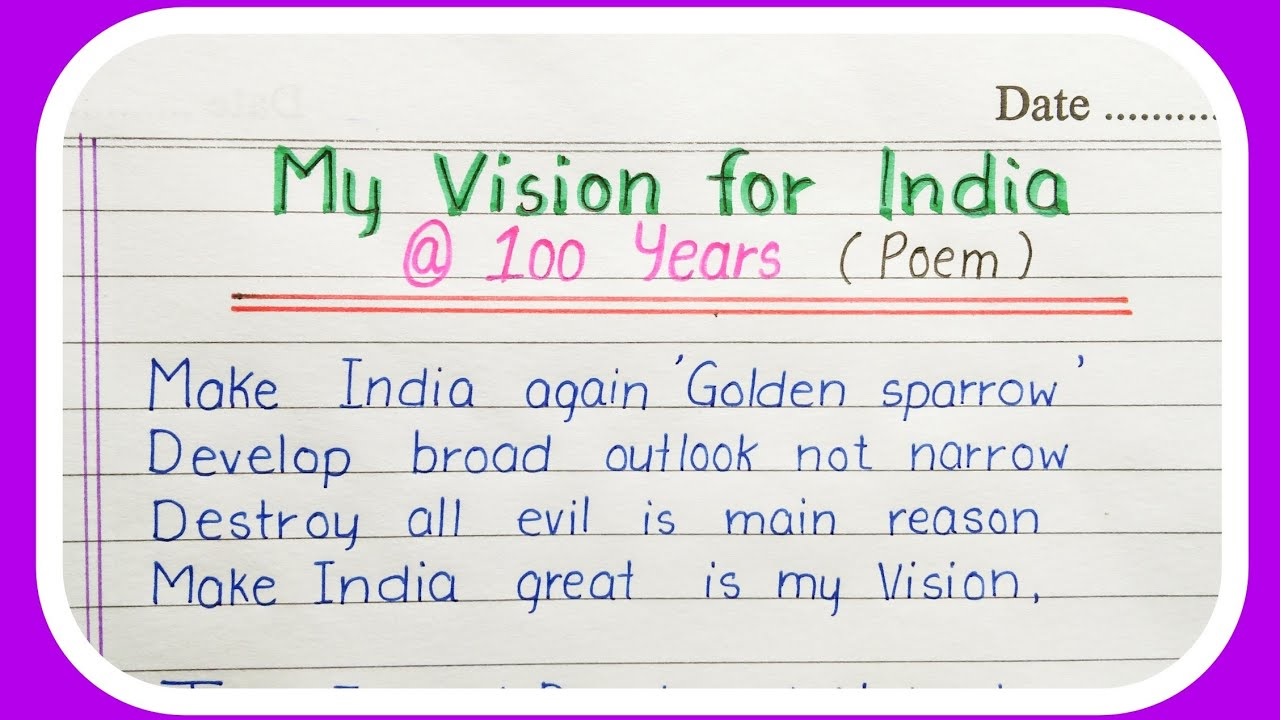 Date ..........
My Vision for India
@ 100 Years (Poem)
Make India again 'Golden sparrow'
Develop broad outlook not narrow
Destroy all evil is main reason
Make India great is my Vision,